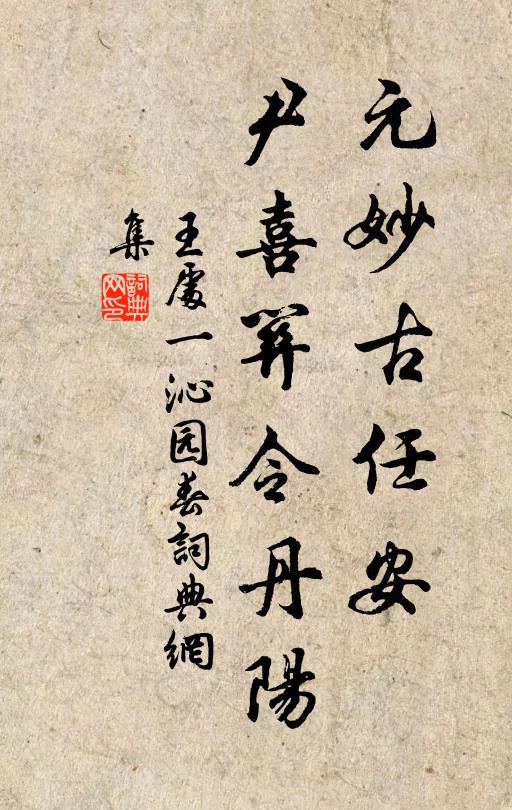 元妙古任安
尹喜算令丹陽
王處一沁园春詞典網
集
詞典
网印